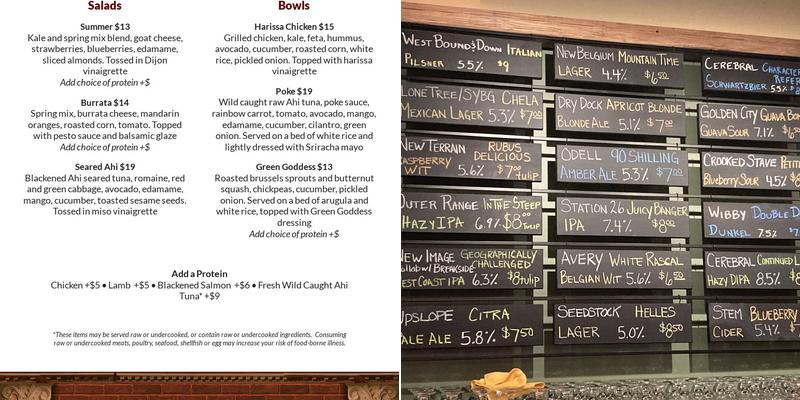 Salads
Summer $13
Kale and spring mix blend, goat cheese,
strawberries, blueberries, edamame,
sliced almonds. Tossed in Dijon
vinaigrette
Add choice of protein +$
Burrata $14
Spring mix, burrata cheese, mandarin
oranges, roasted corn, tomato. Topped
with pesto sauce and balsamic glaze
Add choice of protein +$
Seared Ahi $19
Blackened Ahi seared tuna, romaine, red
and green cabbage, avocado, edamame,
mango, cucumber, toasted sesame seeds.
Tossed in miso vinaigrette
Bowls
Harissa Chicken $15
Grilled chicken, kale, feta, hummus,
avocado, cucumber, roasted corn, white
rice, pickled onion. Topped with harissa
vinaigrette
Poke $19
Wild caught raw Ahi tuna, poke sauce,
rainbow carrot, tomato, avocado, mango,
edamame, cucumber, cilantro, green
onion. Served on a bed of white rice and
lightly dressed with Sriracha mayo
Green Goddess $13
Roasted brussels sprouts and butternut
squash, chickpeas, cucumber, pickled
onion. Served on a bed of arugula and
white rice, topped with Green Goddess
dressing
Add choice of protein +$
Add a Protein
Chicken +$5 • Lamb +$5 • Blackened Salmon +$6 • Fresh Wild Caught Ahi
Tuna* +$9
*These items may be served raw or undercooked, or contain raw or undercooked ingredients. Consuming
raw or undercooked meats, poultry, seafood, shellfish or egg may increase your risk of food-borne illness.
West Bound & Down Italian
Pilsner 5.5% $9
Lone Tree/SYBG Chela
Mexican Lager 5.3% $7.00
New Terrain Rubus
Delicious
Raspberry
Wit 5.6% $7.00 tulip
Outer Range In The Steep
Hazy IPA 6.9% $8.00 Tulip
New Image Geographically
Challenged
Collab w/ Breakside
West Coast IPA 6.3% $8 tulip
Upslope Citra
Pale Ale 5.8% $7.50
New Belgium Mountain Time
Lager 4.4% $6.50
Dry Dock Apricot Blonde
Blonde Ale 5.1% $7.00
Odell 90 Shilling
Amber Ale 5.3% $7.00
Station 26 Juicy Banger
IPA 7.4% $8.00
Avery White Rascal
Belgian Wit 5.6% $6.50
Seedstock Helles
Lager 5.0% $8.50
Cerebral Character
Refer
Schwartzbier 5.5%
Golden City Guava Bom
Guava Sour 7.1%
Crooked Stave Petit
Blueberry Sour 4.5%
Wibby Double D
Dunkel 7.5%
Cerebral Continued L
Hazy DIPA 8.5%
Stem Blueberry
Cider 5.4%